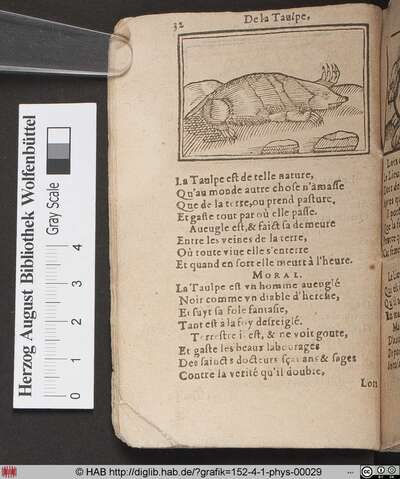 32
De la Taulpe.
La Taulpe est de telle nature,
Qu'au monde autre chose n'amasse
Que de la terre, ou prend pasture,
Et gaste tout par où elle passe.
Aueugle est, & faict sa demeure
Entre les veines de la terre,
Où toute viue elle s'enterre
Et quand en sort elle meurt à l'heure.
MORAL.
La Taulpe est vn homme aueuglé
Noir comme vn diable d'
Et suyt sa fole fantasie,
Tant est à la foy desreiglé.
Terrestre i est, & ne voit goute,
Et gaste les beaux labourages
Des saincts docteurs sçauans & sages
Contre la verité qu'il doubte,
Lon
Herzog August Bibliothek Wolfenbüttel
Gray Scale
0 1 2 3 4
© HAB http://diglib.hab.de/?grafik=152-4-1-phys-00029